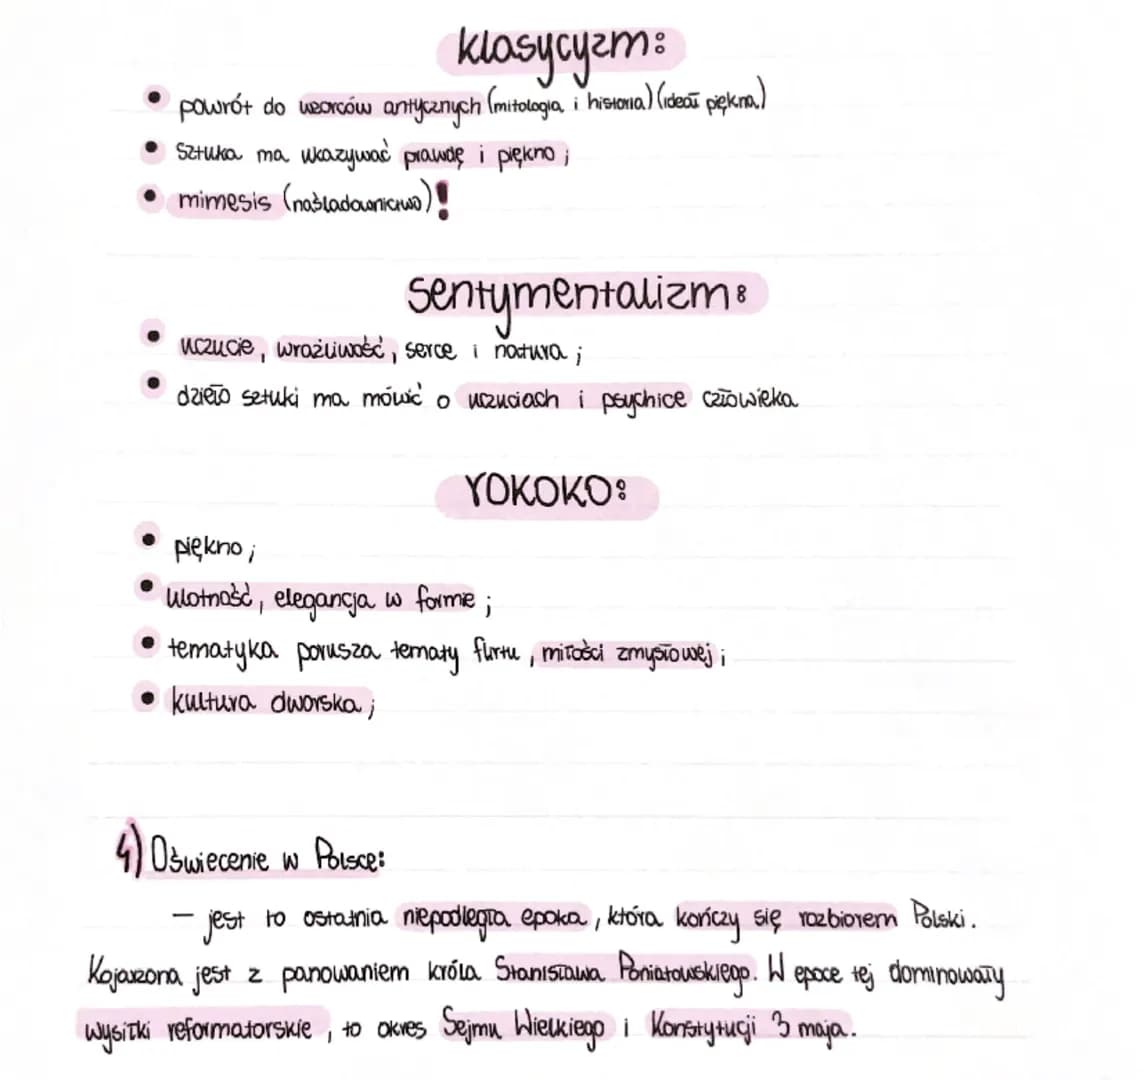 klasycyzm:
• powrót do wzorców antycznych (mitologia i historia) (ideał piękna)
• Sztuka ma ukazywać prawdę i piękno ;
• mimesis (naśladownictwo)!
Sentymentalizm:
• uczucie, wrażliwość, serce i natura ;
• dzieło sztuki ma mówić o uczuciach i psychice człowieka
rokoko:
• piękno ;
• ulotność, elegancja w formie ;
• tematyka porusza tematy flirtu, miłości zmysłowej ;
• kultura dworska ;
4) Oświecenie w Polsce:
– jest to ostatnia niepodległa epoka, która kończy się rozbiorem Polski.
Kojarzona jest z panowaniem króla Stanisława Poniatowskiego. W epoce tej dominowały
wysiłki reformatorskie, to okres Sejmu Wielkiego i Konstytucji 3 maja.